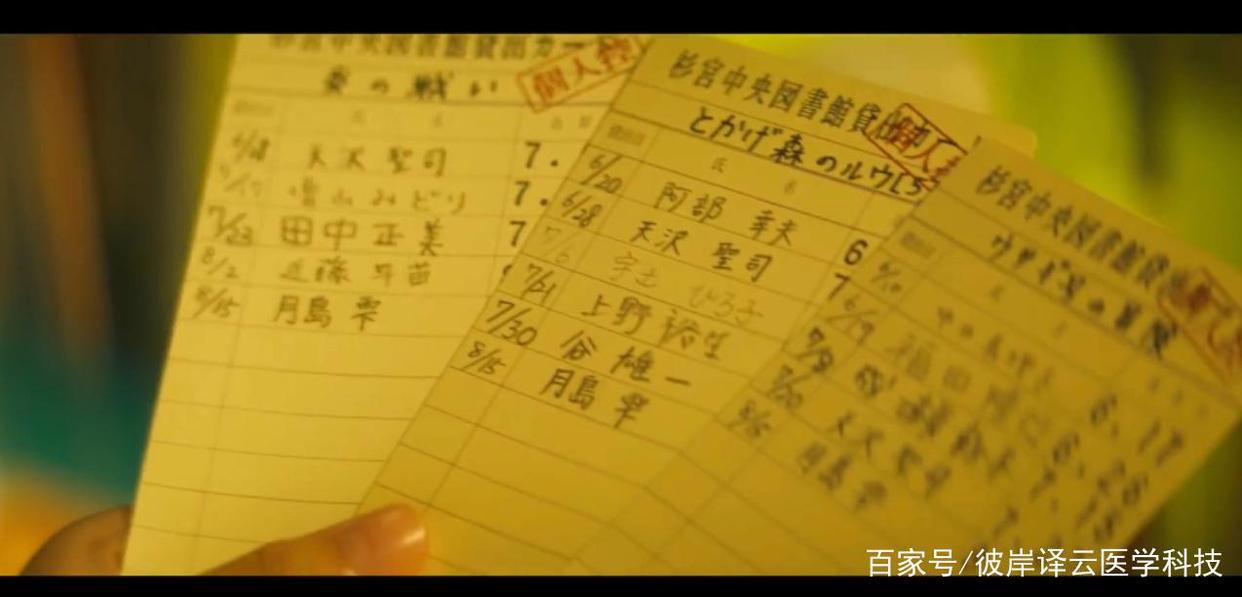 杉宮中央図書館貸出カー
個人
の戦い
天沢聖司 7.
7/17 増山みどり 7.
7/23 田中正美 7
8/2 近藤
8/15 月島雫
杉宮中央図書館貸出カ
個人
とかげ森のルウ
氏 名
6/20 阿部 幸夫 6
6/28 天沢 聖司 7
7/6 宇土 ひろ子
7/21 上野 裕生
7/30 谷 雄一
8/15 月島 雫
杉宮中央図書館貸出
ウサギ号の冒険
6/10 6. 18
6/19 福田 6. 26
7/9 7. 18
7/20 天沢聖司 7.
8/15 月島 雫
百家号/彼岸译云医学科技